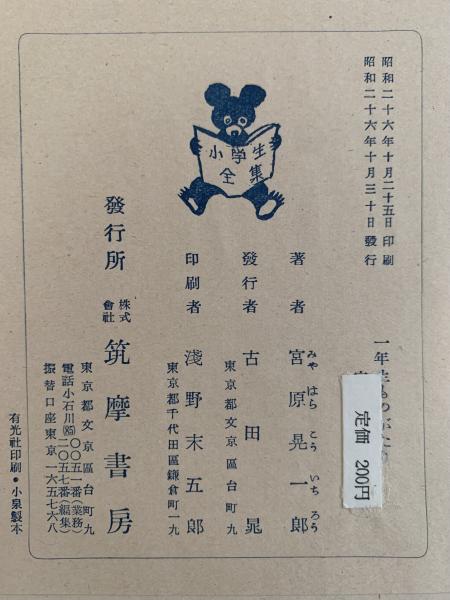 昭和二十六年十月二十五日 印刷
昭和二十六年十月三十日 發行
一年生ものがたり
定価 200円
著者 宮原晃一郎
みや はら こう いち ろう
發行者 古田晁
東京都文京區台町九
印刷者 淺野末五郎
東京都千代田區鎌倉町一九
小学生
全集
發行所 株式會社 筑摩書房
東京都文京區台町九
電話小石川(85)
〇〇五一番(業務)
二〇五七番(編集)
振替口座東京一六五七六八
有光社印刷・小泉製本